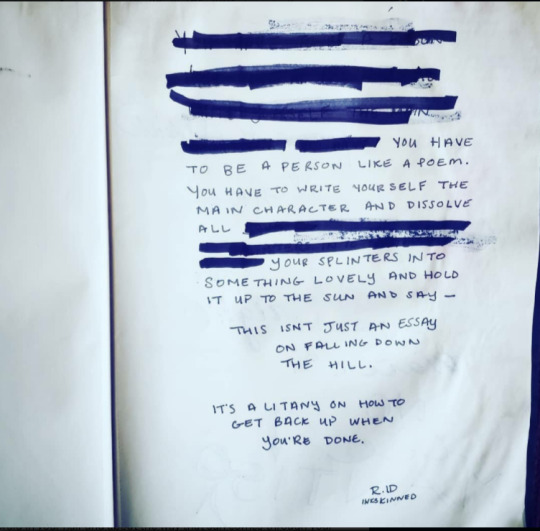 YOU HAVE
TO BE A PERSON LIKE A POEM.
YOU HAVE TO WRITE YOURSELF THE
MAIN CHARACTER AND DISSOLVE
ALL
YOUR SPLINTERS INTO
SOMETHING LOVELY AND HOLD
IT UP TO THE SUN AND SAY —
THIS ISNT JUST AN ESSAY
ON FALLING DOWN
THE HILL.
IT'S A LITANY ON HOW TO
GET BACK UP WHEN
YOU'RE DONE.
R.ID
INKSKINNED